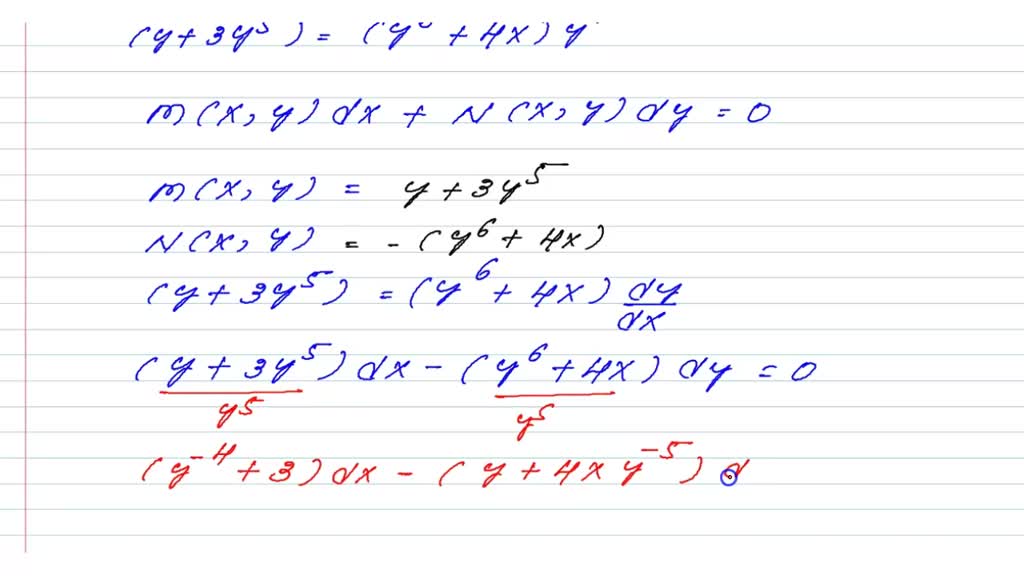 (y + 3y⁵) = (y⁶ + 4x) y'
M(x, y) dx + N(x, y) dy = 0
M(x, y) = y + 3y⁵
N(x, y) = - (y⁶ + 4x)
(y + 3y⁵) = (y⁶ + 4x) dy/dx
(y + 3y⁵) dx - (y⁶ + 4x) dy = 0
y⁵ y⁵
(y⁻⁴ + 3) dx - (y + 4x y⁻⁵) d